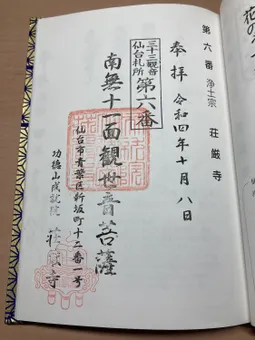 第六番 浄土宗 荘厳寺
奉拝 令和四年十月八日
三十三観音
仙台札所
第六番
南無十一面観世音菩薩
仙台市青葉区新坂町十二番一号
功徳山成就院 荘厳寺
花の